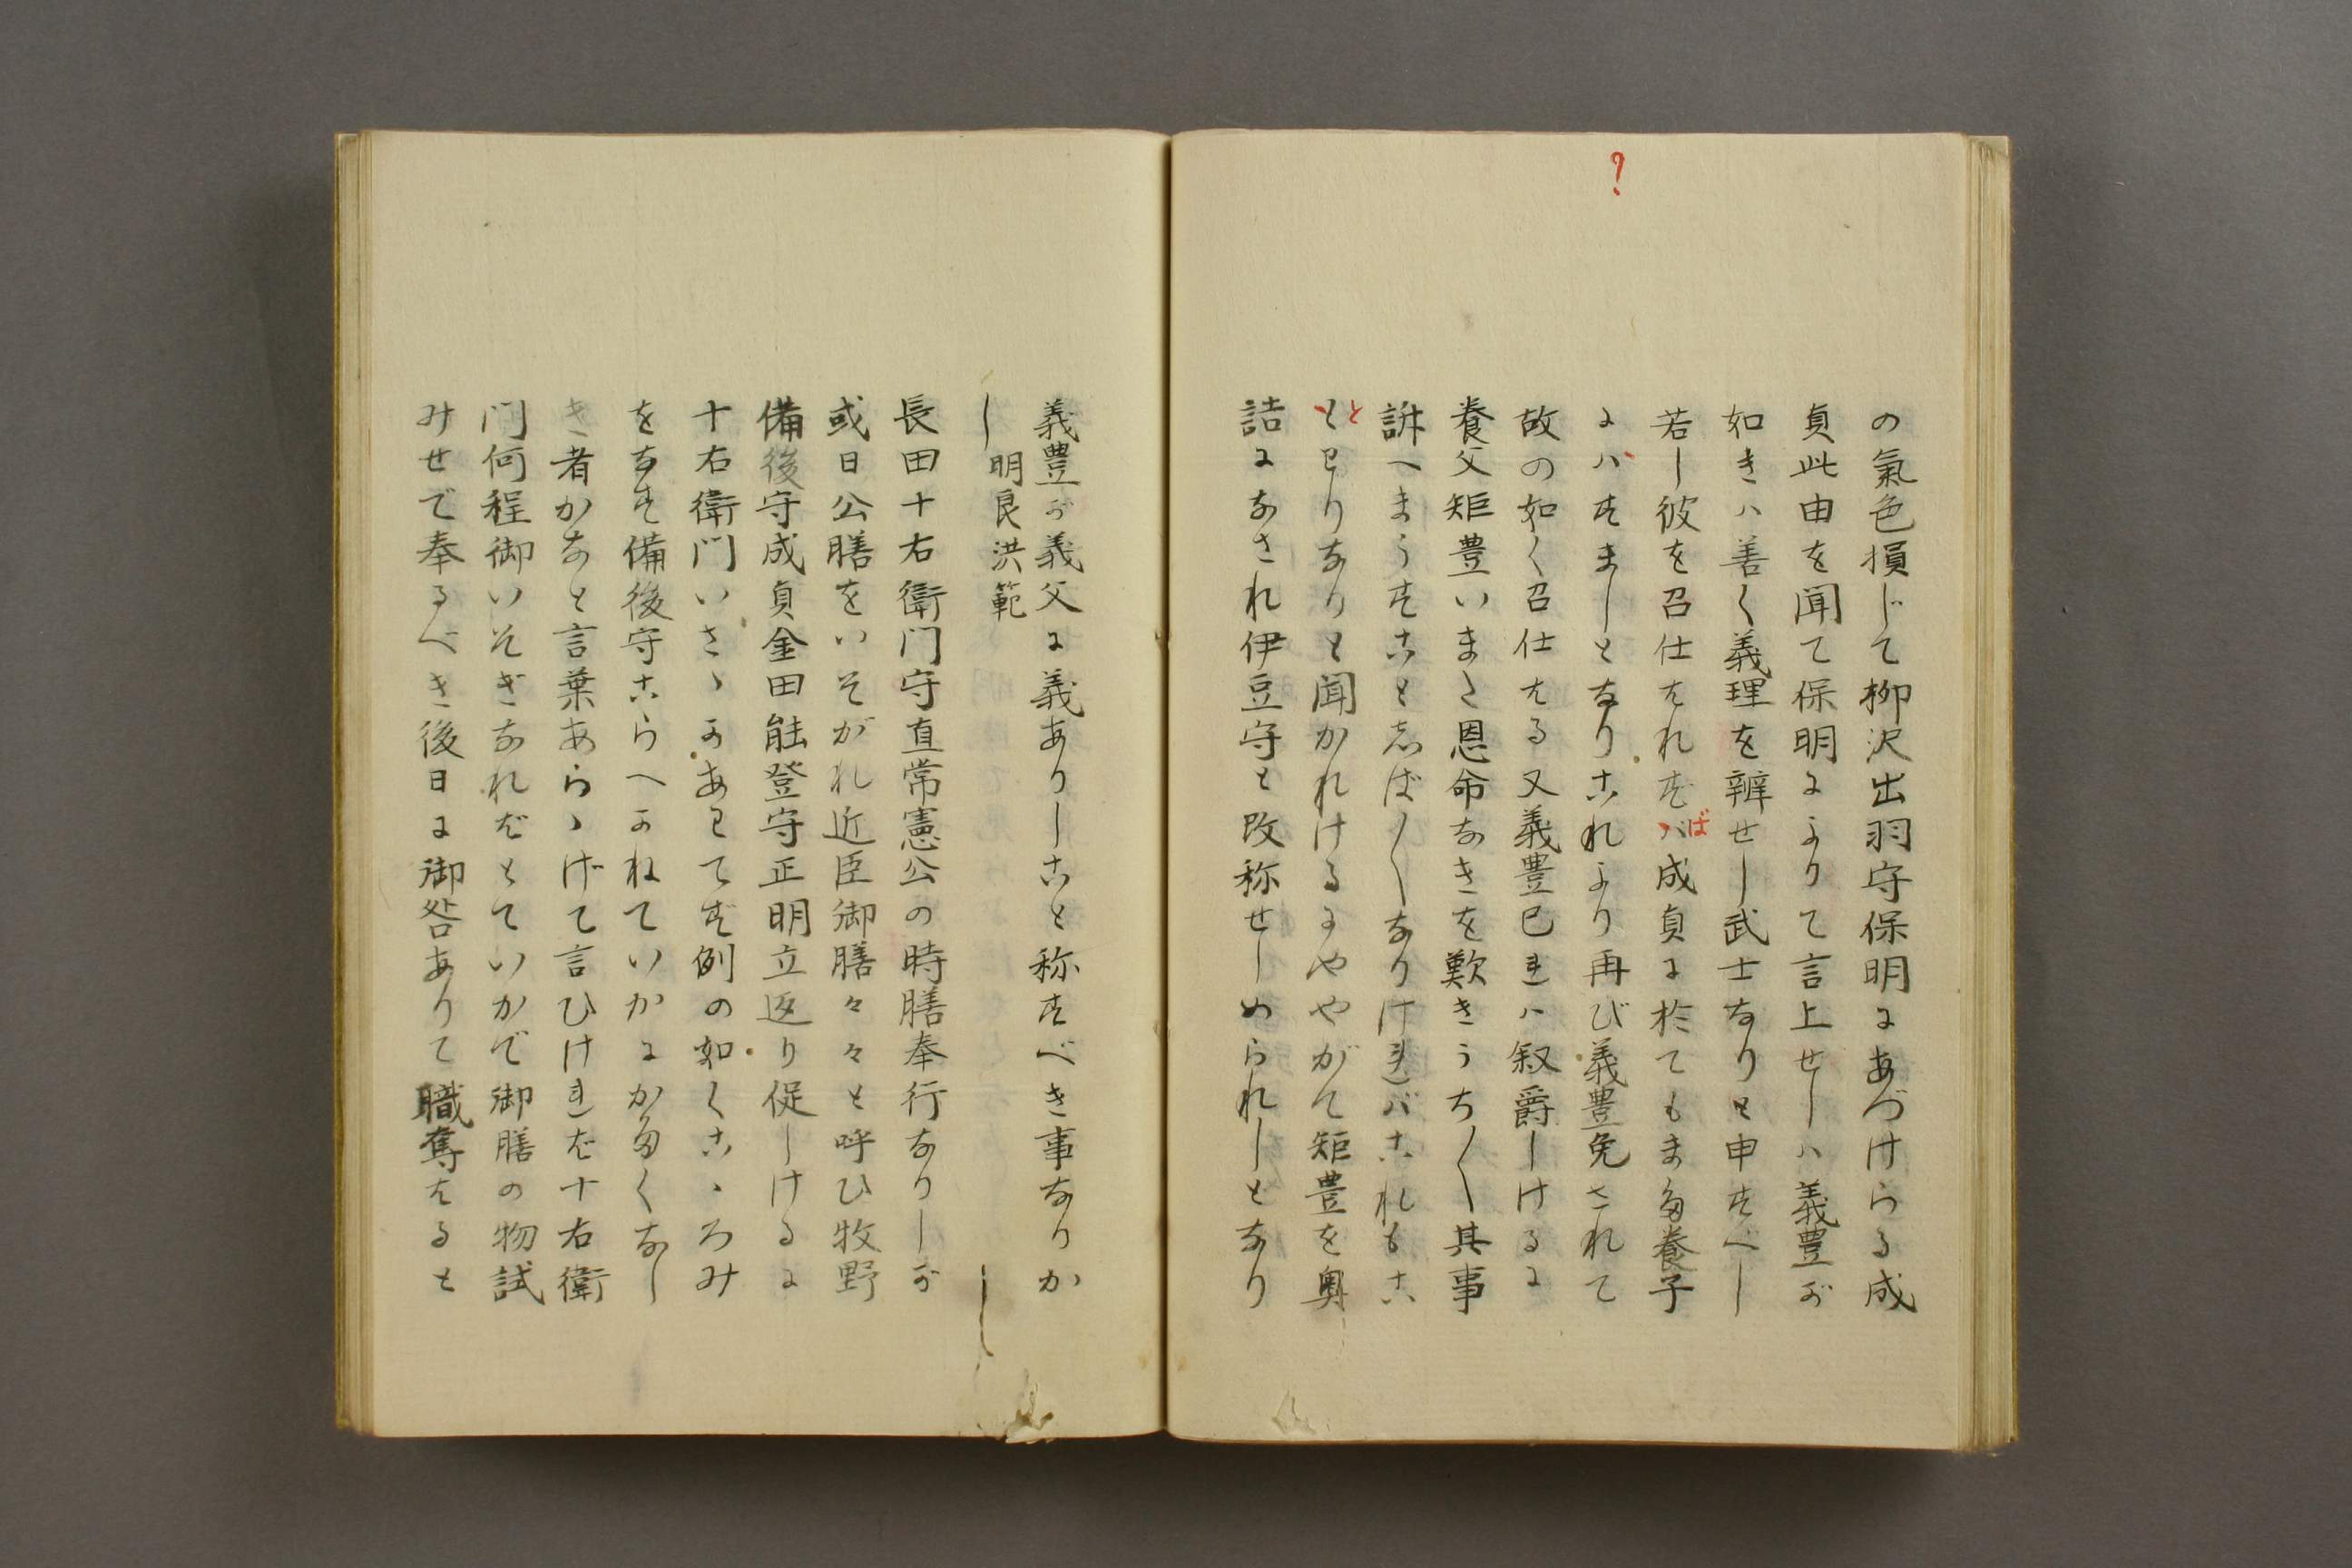 ?
の氣色損じて柳沢出羽守保明にあづけらる成
貞此由を聞て保明によりて言上せしハ義豊が
如きハ善く義理を辨せし武士なりと申すべし
若し彼を召仕はれずバ成貞に於てもまた養子
ば
にハすましとなりこれより再び義豊免されて
故の如く召仕はる又義豊已にハ叙爵しけるに
養父矩豊いまだ恩命なきを歎きうち〳〵其事
訴へまうすことしば〳〵なりければこれもこ
とわりなりと聞かれけるにややがて矩豊を奥
と
詰になされ伊豆守と改称せしめられしとなり
義豊が義父に義ありしこと称すべき事なりか
し
明良洪範
長田十右衛門守直常憲公の時膳奉行なりしが
或日公膳をいそがれ近臣御膳々々と呼ひ牧野
備後守成貞金田能登守正明立返り促しけるに
十右衛門いさゝかあわてず例の如くこゝろみ
をなす備後守こらへかねていかにかたくなし
き者かなと言葉あらゝげて言ひければ十右衛
門何程御いそぎなればとていかで御膳の物試
みせで奉るべき後日に御咎ありて職奪はると